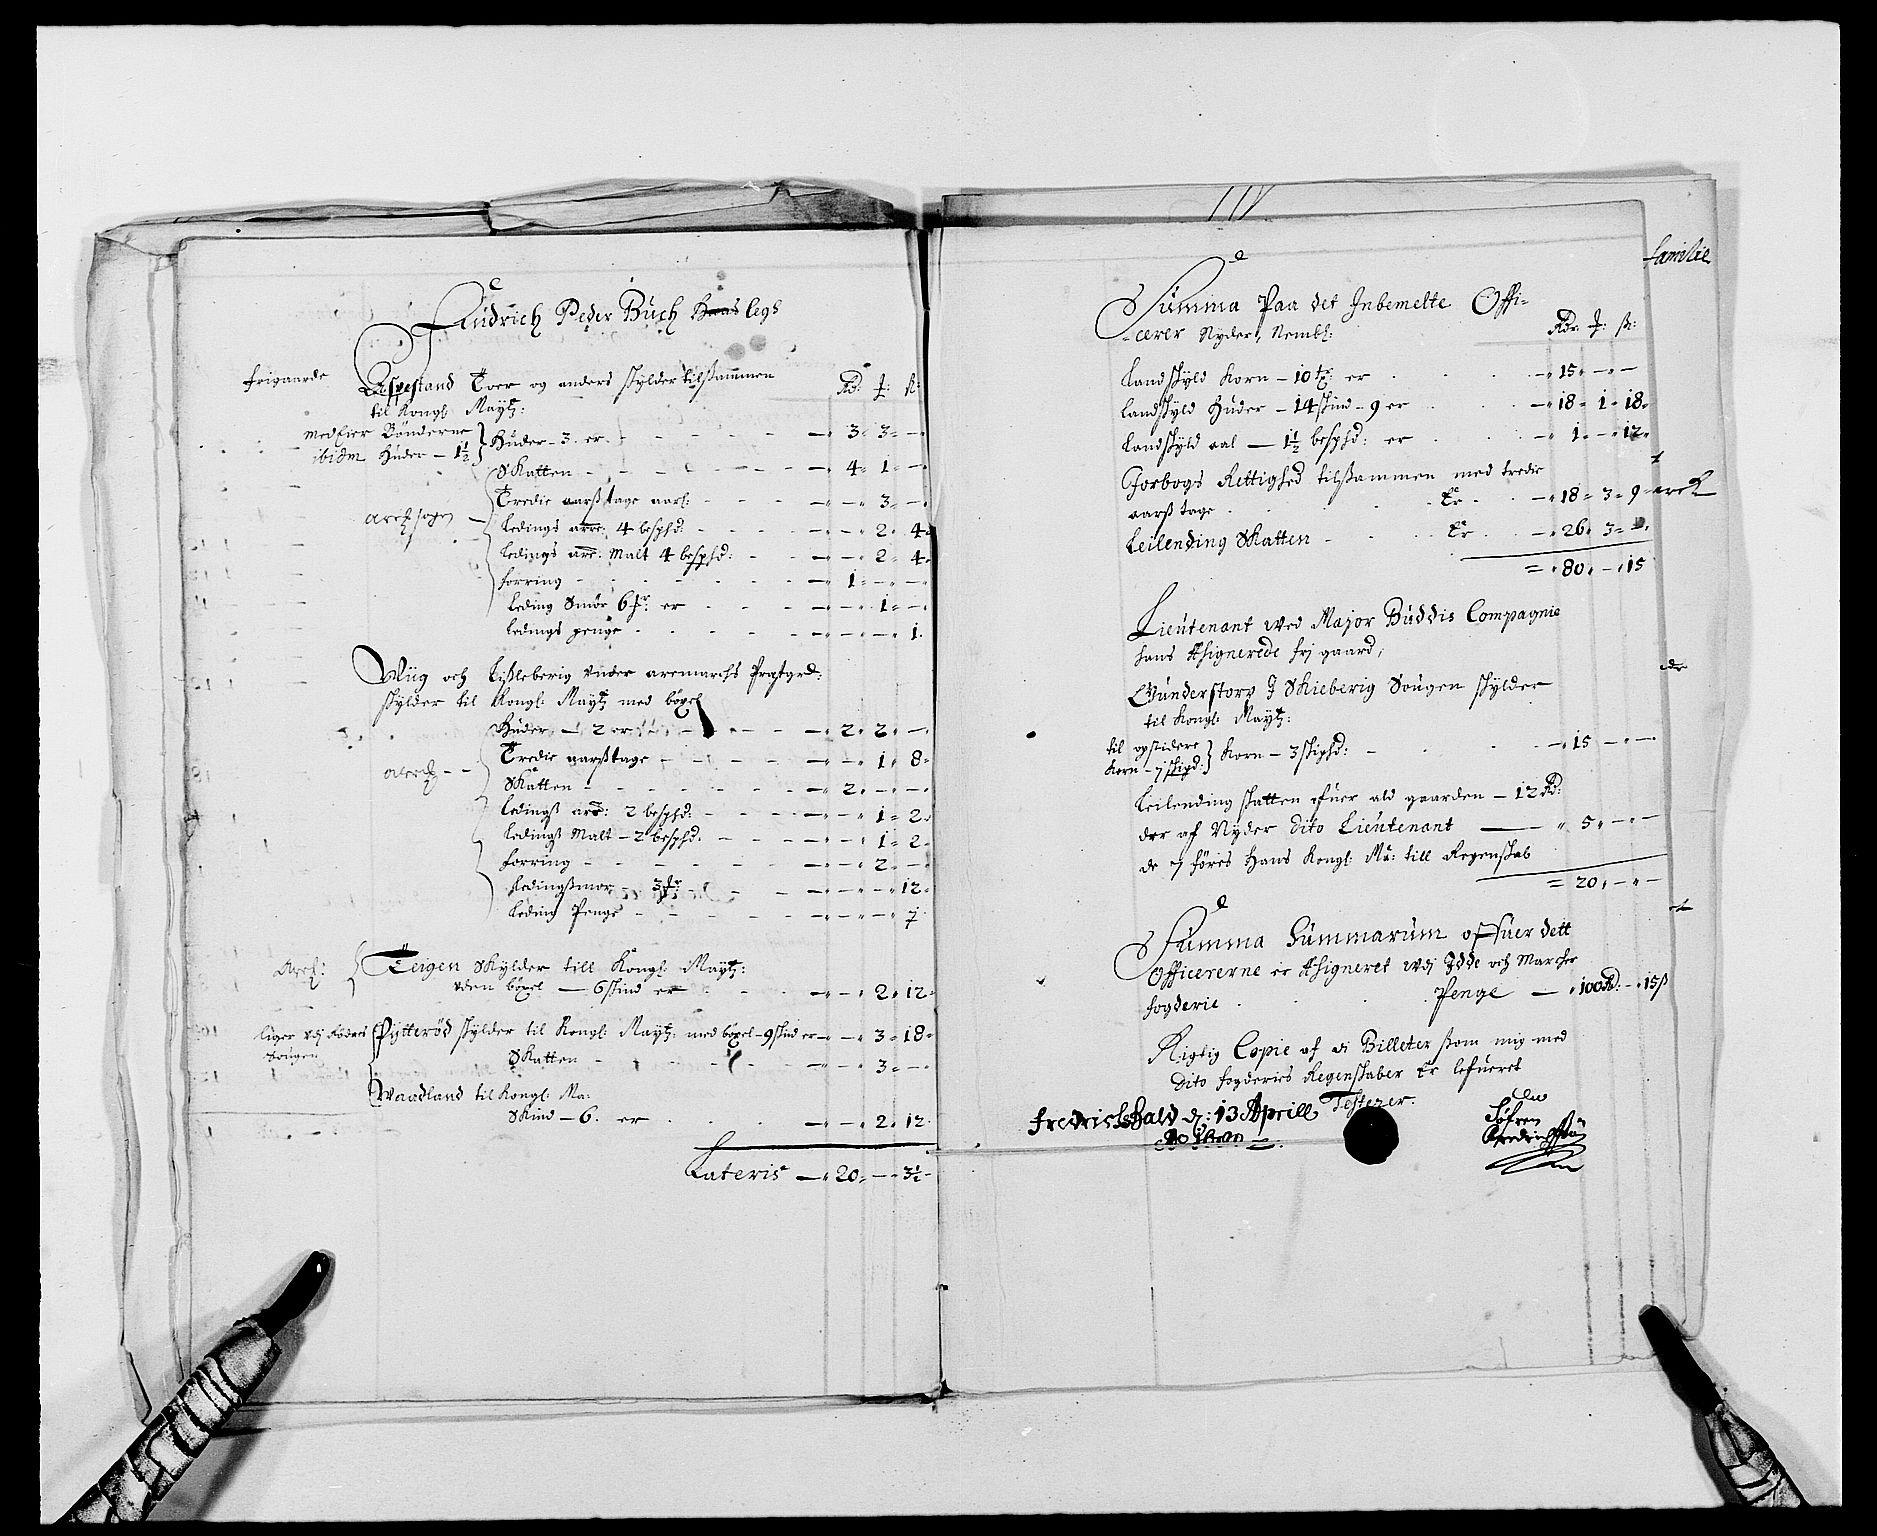 Fendrich Peder Buch Haas legs
frigaarde
Aspestrand Tver og anders skylder tilsammen
til Kongl: Maytz:
Rd: ß:
med Eier Bønderne
ibidm Huder – 1½
Huder – 3. er – 3 – 3 –
Skatten – 4 – 1 –
Aremk sogen
Tredie aarß tage aarl: – 3 –
Ledings 4 bespd: – 2 – 4
Ledings Malt 4 bespd: – 2 – 4
forring – 1 – –
Leding Smør 6 er – 1 –
Ledings penge – 1
Wiig och Lißleberig under aremarchs Prestgrd:
skylder til Kongl: Maytz med bøxel
Huder – 2 er – 2 – 2 –
Tredie aarßtage – 1 – 8
Skatten – 2 – –
Ledingß 2 bespd: – 1 – 2
Ledingß Malt – 2 bespd: – 1 – 2
forring – 2 –
Ledingßmør – 3 – 12
Leding Penge – 7
Teigen Skylder till Kongl: Maytz:
uden bøxel – 6 skind er – 2 – 12
liger udj
Sougen
Pytterød skylder til Kongl: Maytz: med bøxel – 9 skind er – 3 – 18
Skatten – 3 –
Waadland til Kongl: Ma:
Skind – 6. er – 2 – 12
Lateris – 20 – – 3½
familie
Summa Paa det Inbemelte Offi-
cerer Nyder, Nembl:
Rdr: ß:
Landskyld Korn – 10 tr: er – 15 – –
Landskyld Huder – 14 skind – 9 er – 18 – 1 – 18
Landskyld aal – 1½ bespd: er – 1 – 12
Forbogs Rettighed tilsammen med tredie
aarß tage Er – 18 – 3 – 9
Leilending Skatten Er – 26 – 3 –
= 80 – 15
Lieutenant wed Major Buddis Compagnie
hans Assignerede frj gaard,
Gunderstorp J Skieberig Sougen skylder
til Kongl: Maytz:
til opsidere
Korn – 7 skipd:
Korn – 3 skippd: – 15 – –
Leilending skatten efuer ald gaarden – 12 Rd:
der af Nyder Dito Lieutenant – 5 – –
de 7 føris Hans Kongl: Ma: till Regenskab
= 20 – –
Summa Summarum offuer dett
Officererne er Assigneret udj Idde och Marcher
fogderie Penge – 100 Rd: – 15 ß
Rigtig Copie af di Billeter som mig med
Dito fogderies Regenskaber Er lefueret
Testerer.
Fredrichshald d: 13 Aprill
Søfren